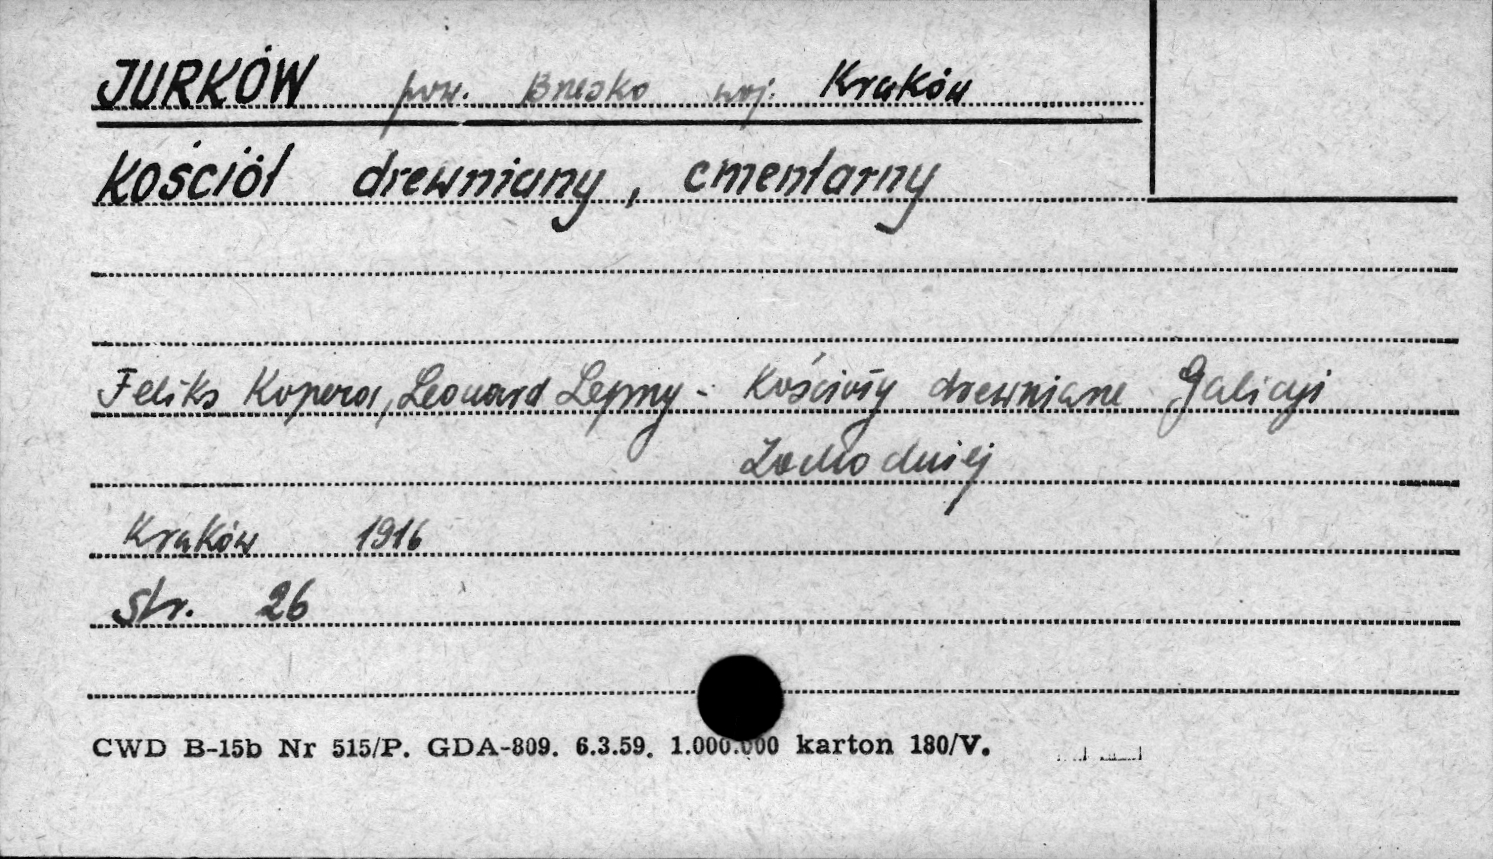 JURKÓW pow. Brzesko woj. Kraków
Kościół drewniany, cmentarny
Feliks Kopera, Leonard Lepszy - Kościoły drewniane Galicyi
Zachodniej
Kraków 1916
Str. 26
CWD B-15b Nr 515/P. GDA-809. 6.3.59. 1.000.000 karton 180/V.